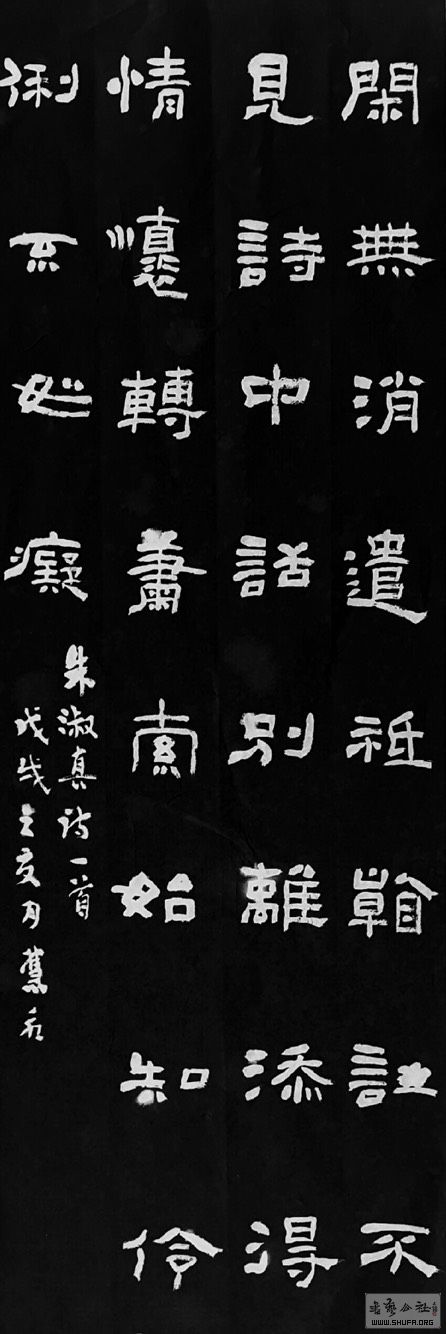 閑無消遣祗看詩不
見詩中話別離添得
情懷轉蕭索始知伶
俐不如癡
朱淑真诗一首
戊戌之夏月
書藝公社
WWW.SHUFA.ORG